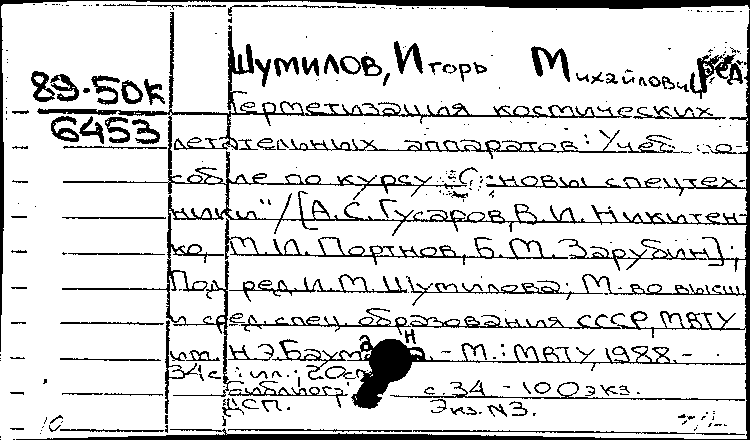 Шумилов, Игорь Михайлович, ред.
89-50к
6453
Герметизация космических
летательных аппаратов: Учеб. по-
собие по курсу "Основы спецтех-
ники" / [А.С. Гусаров, В.И. Никитен-
ко, М.И. Портнов, Б.М. Зарубин];
Под ред. И.М. Шумилова; М-во высш.
и сред. спец. образования СССР, МВТУ
им. Н.Э. Баумана. - М.: МВТУ, 1988. -
34 с.: ил.; 20 см
Библиогр.: с. 34 - 100 экз.
ДСП. Экз. N3.
10